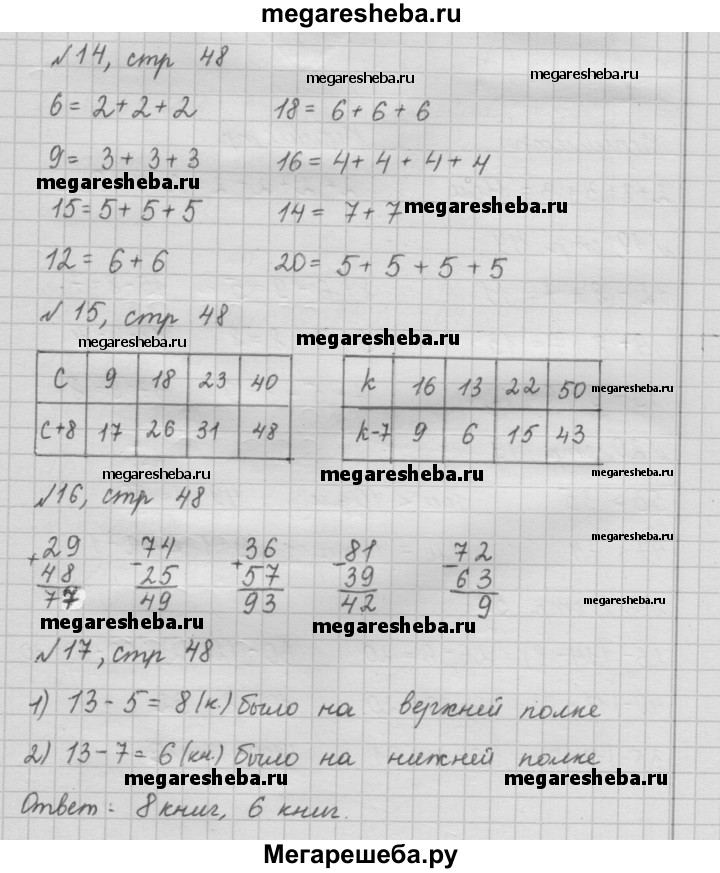 megaresheba.ru
№14, стр 48
megaresheba.ru megaresheba.ru
6 = 2 + 2 + 2 18 = 6 + 6 + 6
9 = 3 + 3 + 3 16 = 4 + 4 + 4 + 4
megaresheba.ru
15 = 5 + 5 + 5 14 = 7 + 7 megaresheba.ru
12 = 6 + 6 20 = 5 + 5 + 5 + 5
№15, стр 48
megaresheba.ru megaresheba.ru
c 9 18 23 40
c+8 17 26 31 48
k 16 13 22 50 megaresheba.ru
k-7 9 6 15 43
megaresheba.ru megaresheba.ru megaresheba.ru
№16, стр 48
megaresheba.ru
+29 -74 +36 -81 -72
48 25 57 39 63
77 49 93 42 9
megaresheba.ru
megaresheba.ru megaresheba.ru
№17, стр 48
1) 13 - 5 = 8 (к.) было на верхней полке
2) 13 - 7 = 6 (кн.) было на нижней полке
megaresheba.ru megaresheba.ru
Ответ: 8 книг, 6 книг.
Мегарешеба.ру